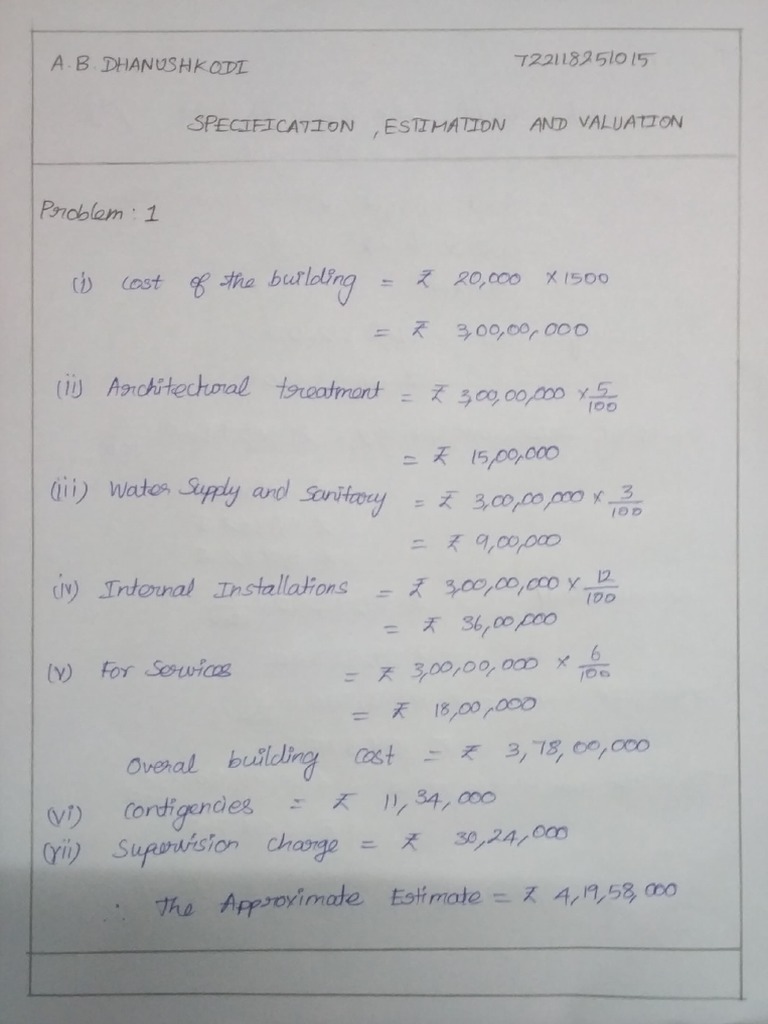 A.B.DHANUSHKODI 722118251015
SPECIFICATION , ESTIMATION AND VALUATION
Problem : 1
(i) cost of the building = ₹ 20,000 × 1500
= ₹ 3,00,00,000
(ii) Architectural treatment = ₹ 3,00,00,000 × 5/100
= ₹ 15,00,000
(iii) Water Supply and Sanitary = ₹ 3,00,00,000 × 3/100
= ₹ 9,00,000
(iv) Internal Installations = ₹ 3,00,00,000 × 12/100
= ₹ 36,00,000
(v) For Services = ₹ 3,00,00,000 × 6/100
= ₹ 18,00,000
Overal building cost = ₹ 3,78,00,000
(vi) contigencies = ₹ 11,34,000
(vii) Supervision charge = ₹ 30,24,000
∴ The Approximate Estimate = ₹ 4,19,58,000